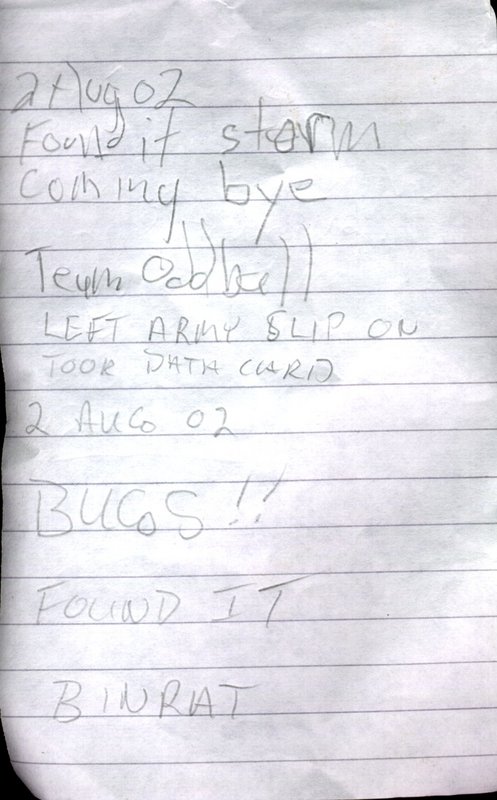 2 Aug 02
Found it storm
Coming bye
Team Oddball
LEFT ARMY SLIP ON
TOOK DATA CARD
2 AUG 02
BUGS !!
FOUND IT
BINRAT